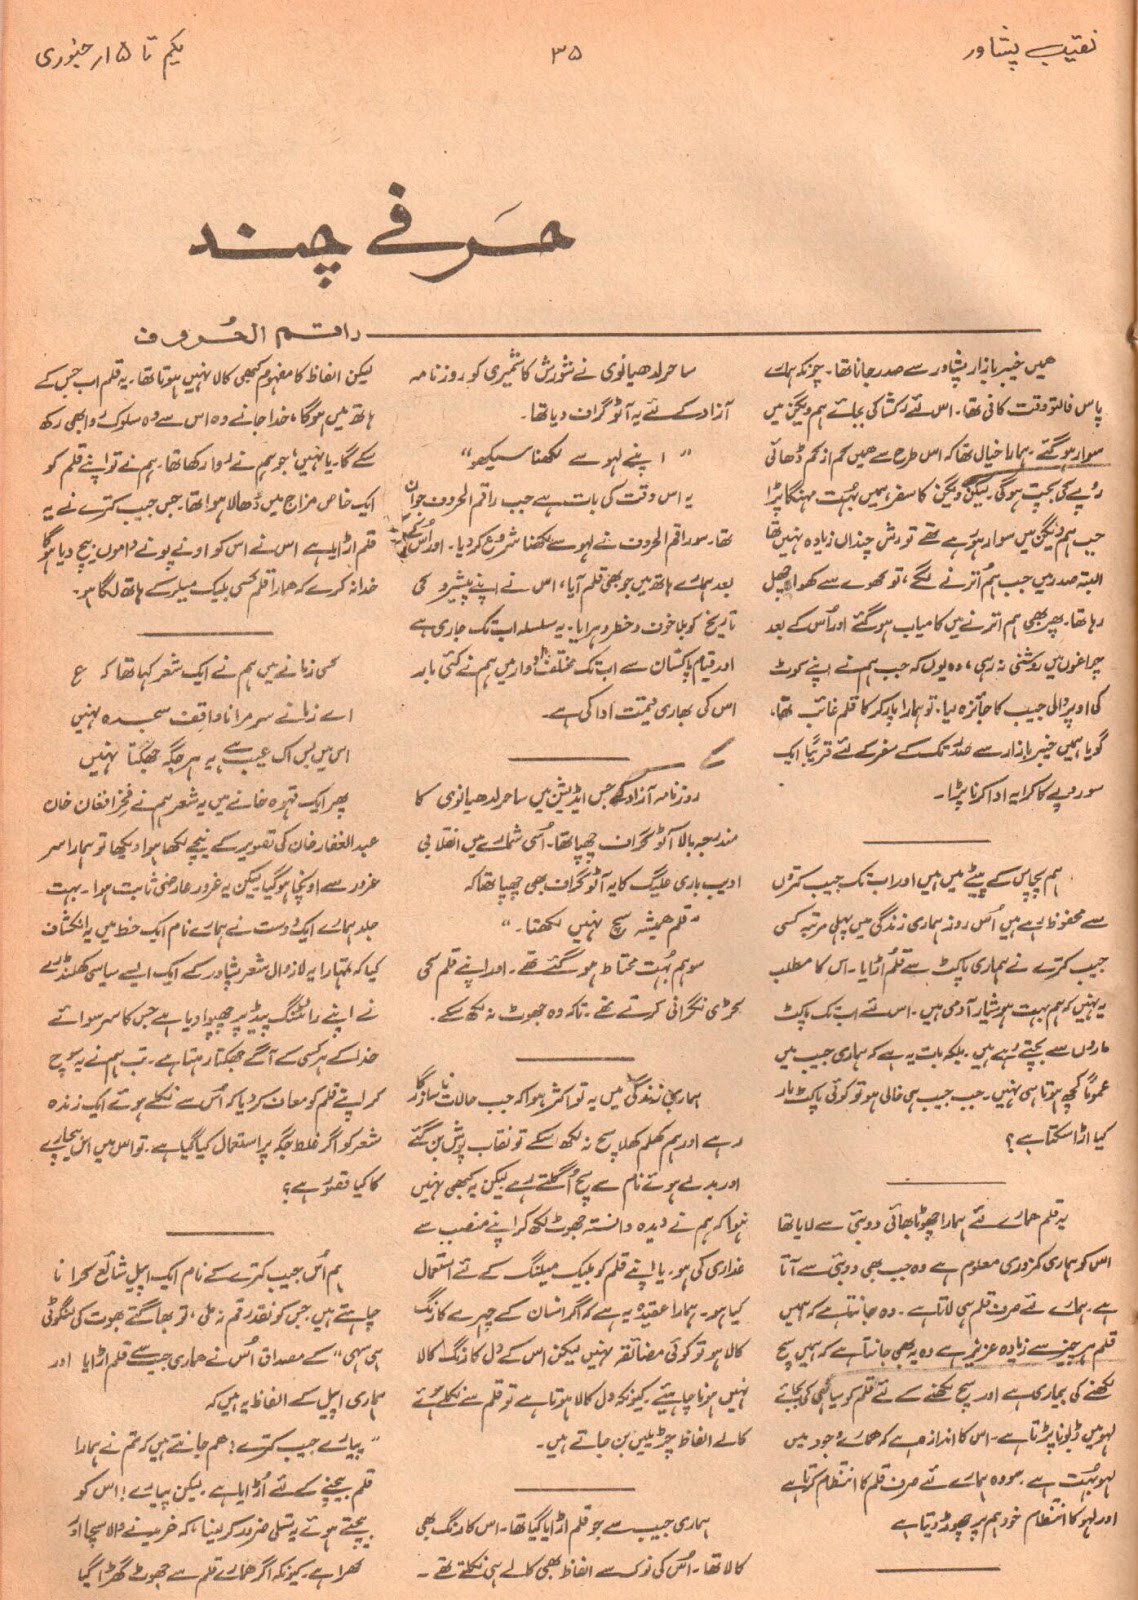 نقیب پشاور
۳۵
یکم تا ۱۵ار جنوری
حرفے چند
راقم الحُروف
ھمیں خیبر بازار پشاور سے صدر جانا تھا۔ چونکہ ہمارے
پاس فالتو وقت کافی تھا۔ اس لئے رکشا کی بجائے ہم ویگن میں
سوار ہو گئے۔ ہمارا خیال تھا کہ اس طرح سے ھمیں کم از کم ڈھائی
روپے کی بچت ہوگی۔ لیکن ویگن کا سفر ہمیں بہُت مہنگا پڑا
جب ہم ویگن میں سوار ہو رہے تھے تو رش چنداں زیادہ نہیں تھا
البتہ صدر میں جب ہم اُترنے لگے، تو کھوے سے کھوا چھل
رہا تھا۔ پھر بھی ہم اترنے میں کامیاب ہو گئے اور اُس کے بعد
چراغوں میں روشنی نہ رہی، وہ یوں کہ جب ہم نے اپنے کوٹ
کی اوپر والی جیب کا جائزہ لیا، تو ہمارا پارکر کا قلم غائب تھا،
گویا ہمیں خیبر بازار سے صدر تک کے سفر کے لئے قریباً ایک
سو روپے کا کرایہ ادا کرنا پڑا۔
ہم پچاس کے پیٹے میں ہیں اور اب تک جیب کتروں
سے محفوظ رہے ہیں اُس روز ہماری زندگی میں پہلی مرتبہ کسی
جیب کترے نے ہماری پاکٹ سے قلم اُڑایا۔ اس کا مطلب
یہ نہیں کہ ہم بہت ہوشیار آدمی ہیں۔ اس لئے اب تک پاکٹ
ماروں سے بچتے رہے ہیں۔ بلکہ بات یہ ہے کہ ہماری جیب میں
عموماً کچھ ہوتا ہی نہیں۔ جب جیب ہی خالی ہو تو کوئی پاکٹ مار
کیا اڑا سکتا ہے؟
یہ قلم ھمارے لئے ہمارا چھوٹا بھائی دوبئی سے لایا تھا
اس کو ہماری کمزوری معلوم ہے وہ جب بھی دوبئی سے آتا
ہے۔ ہمارے لئے صرف قلم ہی لاتا ہے۔ وہ جانتا ہے کہ ہمیں
قلم ہر چیز سے زیادہ عزیز ہے وہ یہ بھی جانتا ہے کہ ہمیں سچ
لکھنے کی بیماری ہے اور سچ لکھنے کے لئے قلم کو سیاہی کی بجائے
لہو میں ڈبونا پڑتا ہے۔ اس کا اندازہ ہے کہ ھمارے وجود میں
لہو بہُت ہے۔ سو وہ ہمارے لئے صرف قلم کا انتظام کرتا ہے
اور لہو کا انتظام خود ہم پر چھوڑ دیتا ہے
ساحر لدھیانوی نے شورش کاشمیری کو روزنامہ
آزاد کے لئے یہ آٹو گراف دیا تھا۔
" اپنے لہو سے لکھنا سیکھو"
یہ اس وقت کی بات ہے جب راقم الحروف جوان
تھا۔ سو راقم الحروف نے لہو سے لکھنا شروع کر دیا۔ اور اُس کے
بعد ہمارے ہاتھ میں جو بھی قلم آیا، اس نے اپنے پیشرو کی
تاریخ کو بلا خوف و خطر دہرایا۔ یہ سلسلہ اب تک جاری ہے
اور قیام پاکستان سے اب تک مختلف ادوار میں ہم نے کئی بار
اس کی بھاری قیمت ادا کی ہے۔
روزنامہ آزاد کے جس ایڈیشن میں ساحر لدھیانوی کا
مندرجہ بالا آٹو گراف چھپا تھا۔ اُسی شمارے میں انقلابی
ادیب باری علیگ کا یہ آٹو گراف بھی چھپا تھا کہ
"قلم ھمیشہ سچ نہیں لکھتا۔"
سو ہم بہُت محتاط ہو گئے تھے۔ اور اپنے قلم کی
کڑی نگرانی کرتے تھے۔ تاکہ وہ جھوٹ نہ لکھ سکے۔
ہماری زندگی میں یہ تو اکثر ہوا کہ جب حالات ناسازگار
رہے اور ہم کھلم کھلا سچ نہ لکھ سکے تو نقاب پوش بن گئے
اور بدلے ہوئے نام سے سچ اُگلتے رہے لیکن یہ کبھی نہیں
ہوا کہ ہم نے دیدہ دانستہ جھوٹ لکھ کر اپنے منصب سے
غداری کی ہو۔ یا اپنے قلم کو بلیک میلنگ کے لئے استعمال
کیا ہو۔ ہمارا عقیدہ یہ ہے کہ اگر انسان کے چہرے کا رنگ
کالا ہو تو کوئی مضائقہ نہیں لیکن اس کے دل کا رنگ کالا
نہیں ہونا چاہیئے۔ کیونکہ دل کالا ہوتا ہے تو قلم سے نکلے ہوئے
کالے الفاظ چڑیلیں بن جاتے ہیں۔
ہماری جیب سے جو قلم اڑایا گیا تھا۔ اس کا رنگ بھی
کالا تھا۔ اُس کی نوک سے الفاظ بھی کالے ہی نکلتے تھے۔
لیکن الفاظ کا مفہوم کبھی کالا نہیں ہوتا تھا۔ یہ قلم اب جس کے
ہاتھ میں ہوگا، خدا جانے وہ اس سے وہ سلوک روا بھی رکھ
سکے گا۔ یا نہیں، جو ہم نے روا رکھا تھا۔ ہم نے تو اپنے قلم کو
ایک خاص مزاج میں ڈھالا ہوا تھا۔ جس جیب کترے نے یہ
قلم اڑایا ہے اس نے اس کو اونے پونے داموں بیچ دیا ہوگا
خدا نہ کرے کہ ھمارا قلم کسی بلیک میلر کے ہاتھ لگا ہو۔
کسی زمانے میں ہم نے ایک شعر کہا تھا کہ ع
اے زمانے سر مرا نا واقف سجدہ نہیں
اس میں بس اک عیب ہے یہ ہر جگہ جھکتا نہیں
پھر ایک قہوہ خانے میں یہ شعر ہم نے فخر افغان خان
عبدالغفار خان کی تصویر کے نیچے لکھا ہوا دیکھا تو ہمارا سر
غرور سے اونچا ہو گیا لیکن یہ غرور عارضی ثابت ہوا۔ بہت
جلد ہمارے ایک دوست نے ہمارے نام ایک خط میں یہ انکشاف
کیا کہ تمہارا یہ لازوال شعر پشاور کے ایک ایسے سیاسی کھلنڈرے
نے اپنے رائٹنگ پیڈ پر چھپوا دیا ہے جس کا سر سوائے
خدا کے ہر کسی کے آگے جھکتا رھتا ہے۔ تب ہم نے یہ سوچ
کر اپنے قلم کو معاف کر دیا کہ اُس سے نکلے ہوئے ایک زندہ
شعر کو اگر غلط جگہ پر استعمال کیا گیا ہے۔ تو اس میں اس بیچارے
کا کیا قصور ہے؟
ہم اُس جیب کترے کے نام ایک اپیل شائع کرانا
چاہتے ہیں جس کو نقد رقم نہ ملی، تو بھاگتے بھوت کی لنگوٹی
ہی سہی" کے مصداق اُس نے ھماری جیب سے قلم اڑایا اور
ہماری اپیل کے الفاظ یہ ہیں کہ
"پیارے جیب کترے! ھم جانتے ہیں کہ تم نے ہمارا
قلم بیچنے کے لئے اُڑایا ہے۔ لیکن پیارے! اس کو
بیچتے ہوئے یہ تسلی ضرور کر لینا، کہ خریدنے والا سچا اور
کھرا ہے۔ کیونکہ اگر ھمارے قلم سے جھوٹ گھڑا گیا